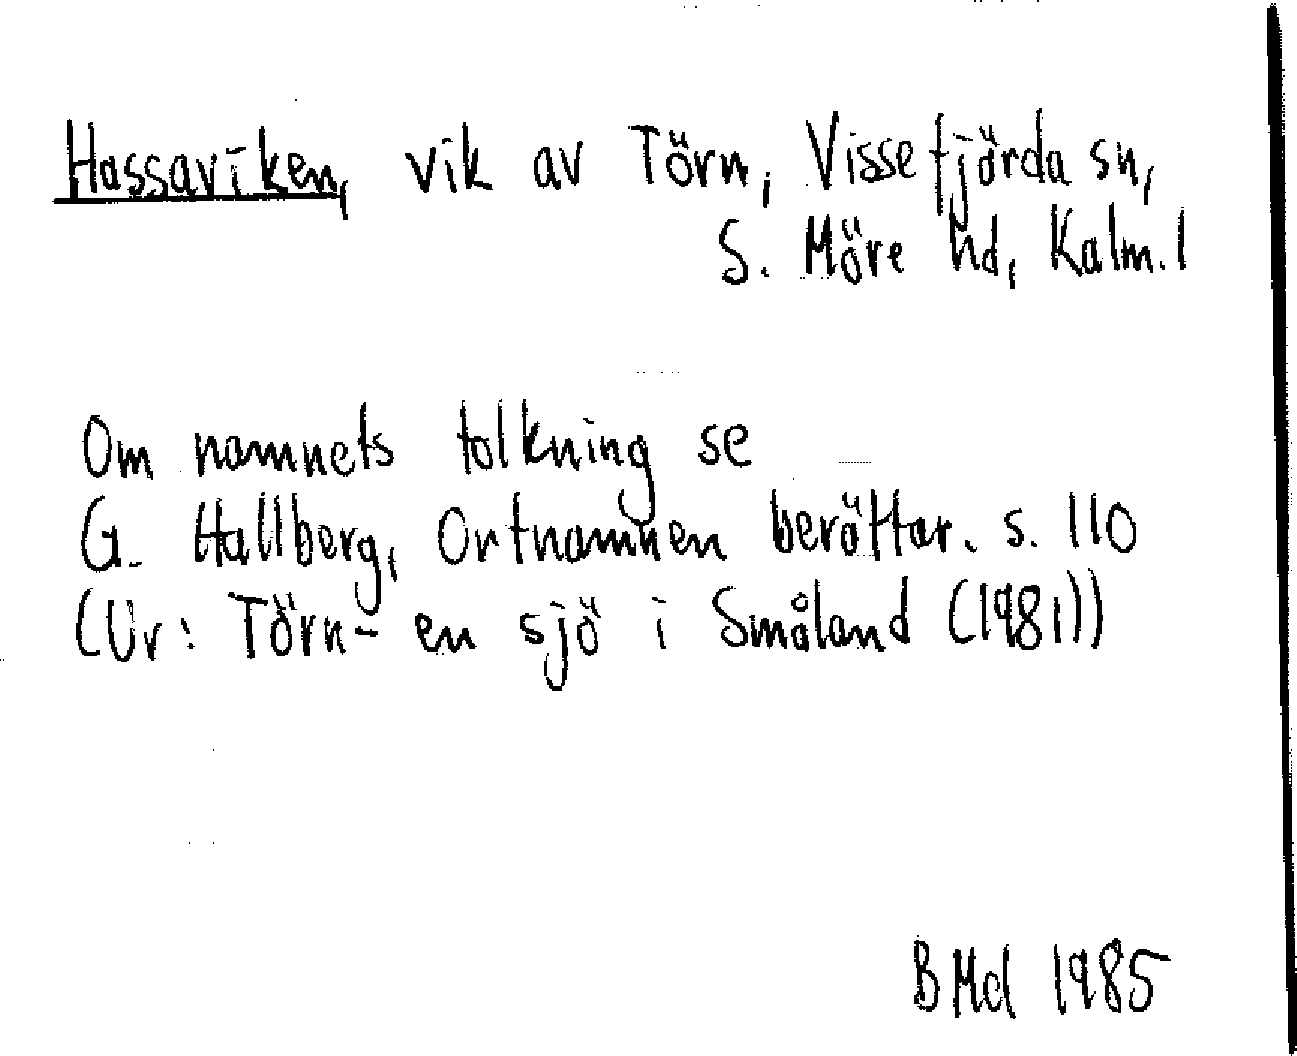 Hassaviken, vik av Törn, Vissefjärda sn,
S. Möre hd, Kalm. l
Om namnets tolkning se
G. Hallberg, Ortnamnen berättar. s. 110
(Ur: Törn - en sjö i Småland (1981))
B Md 1985